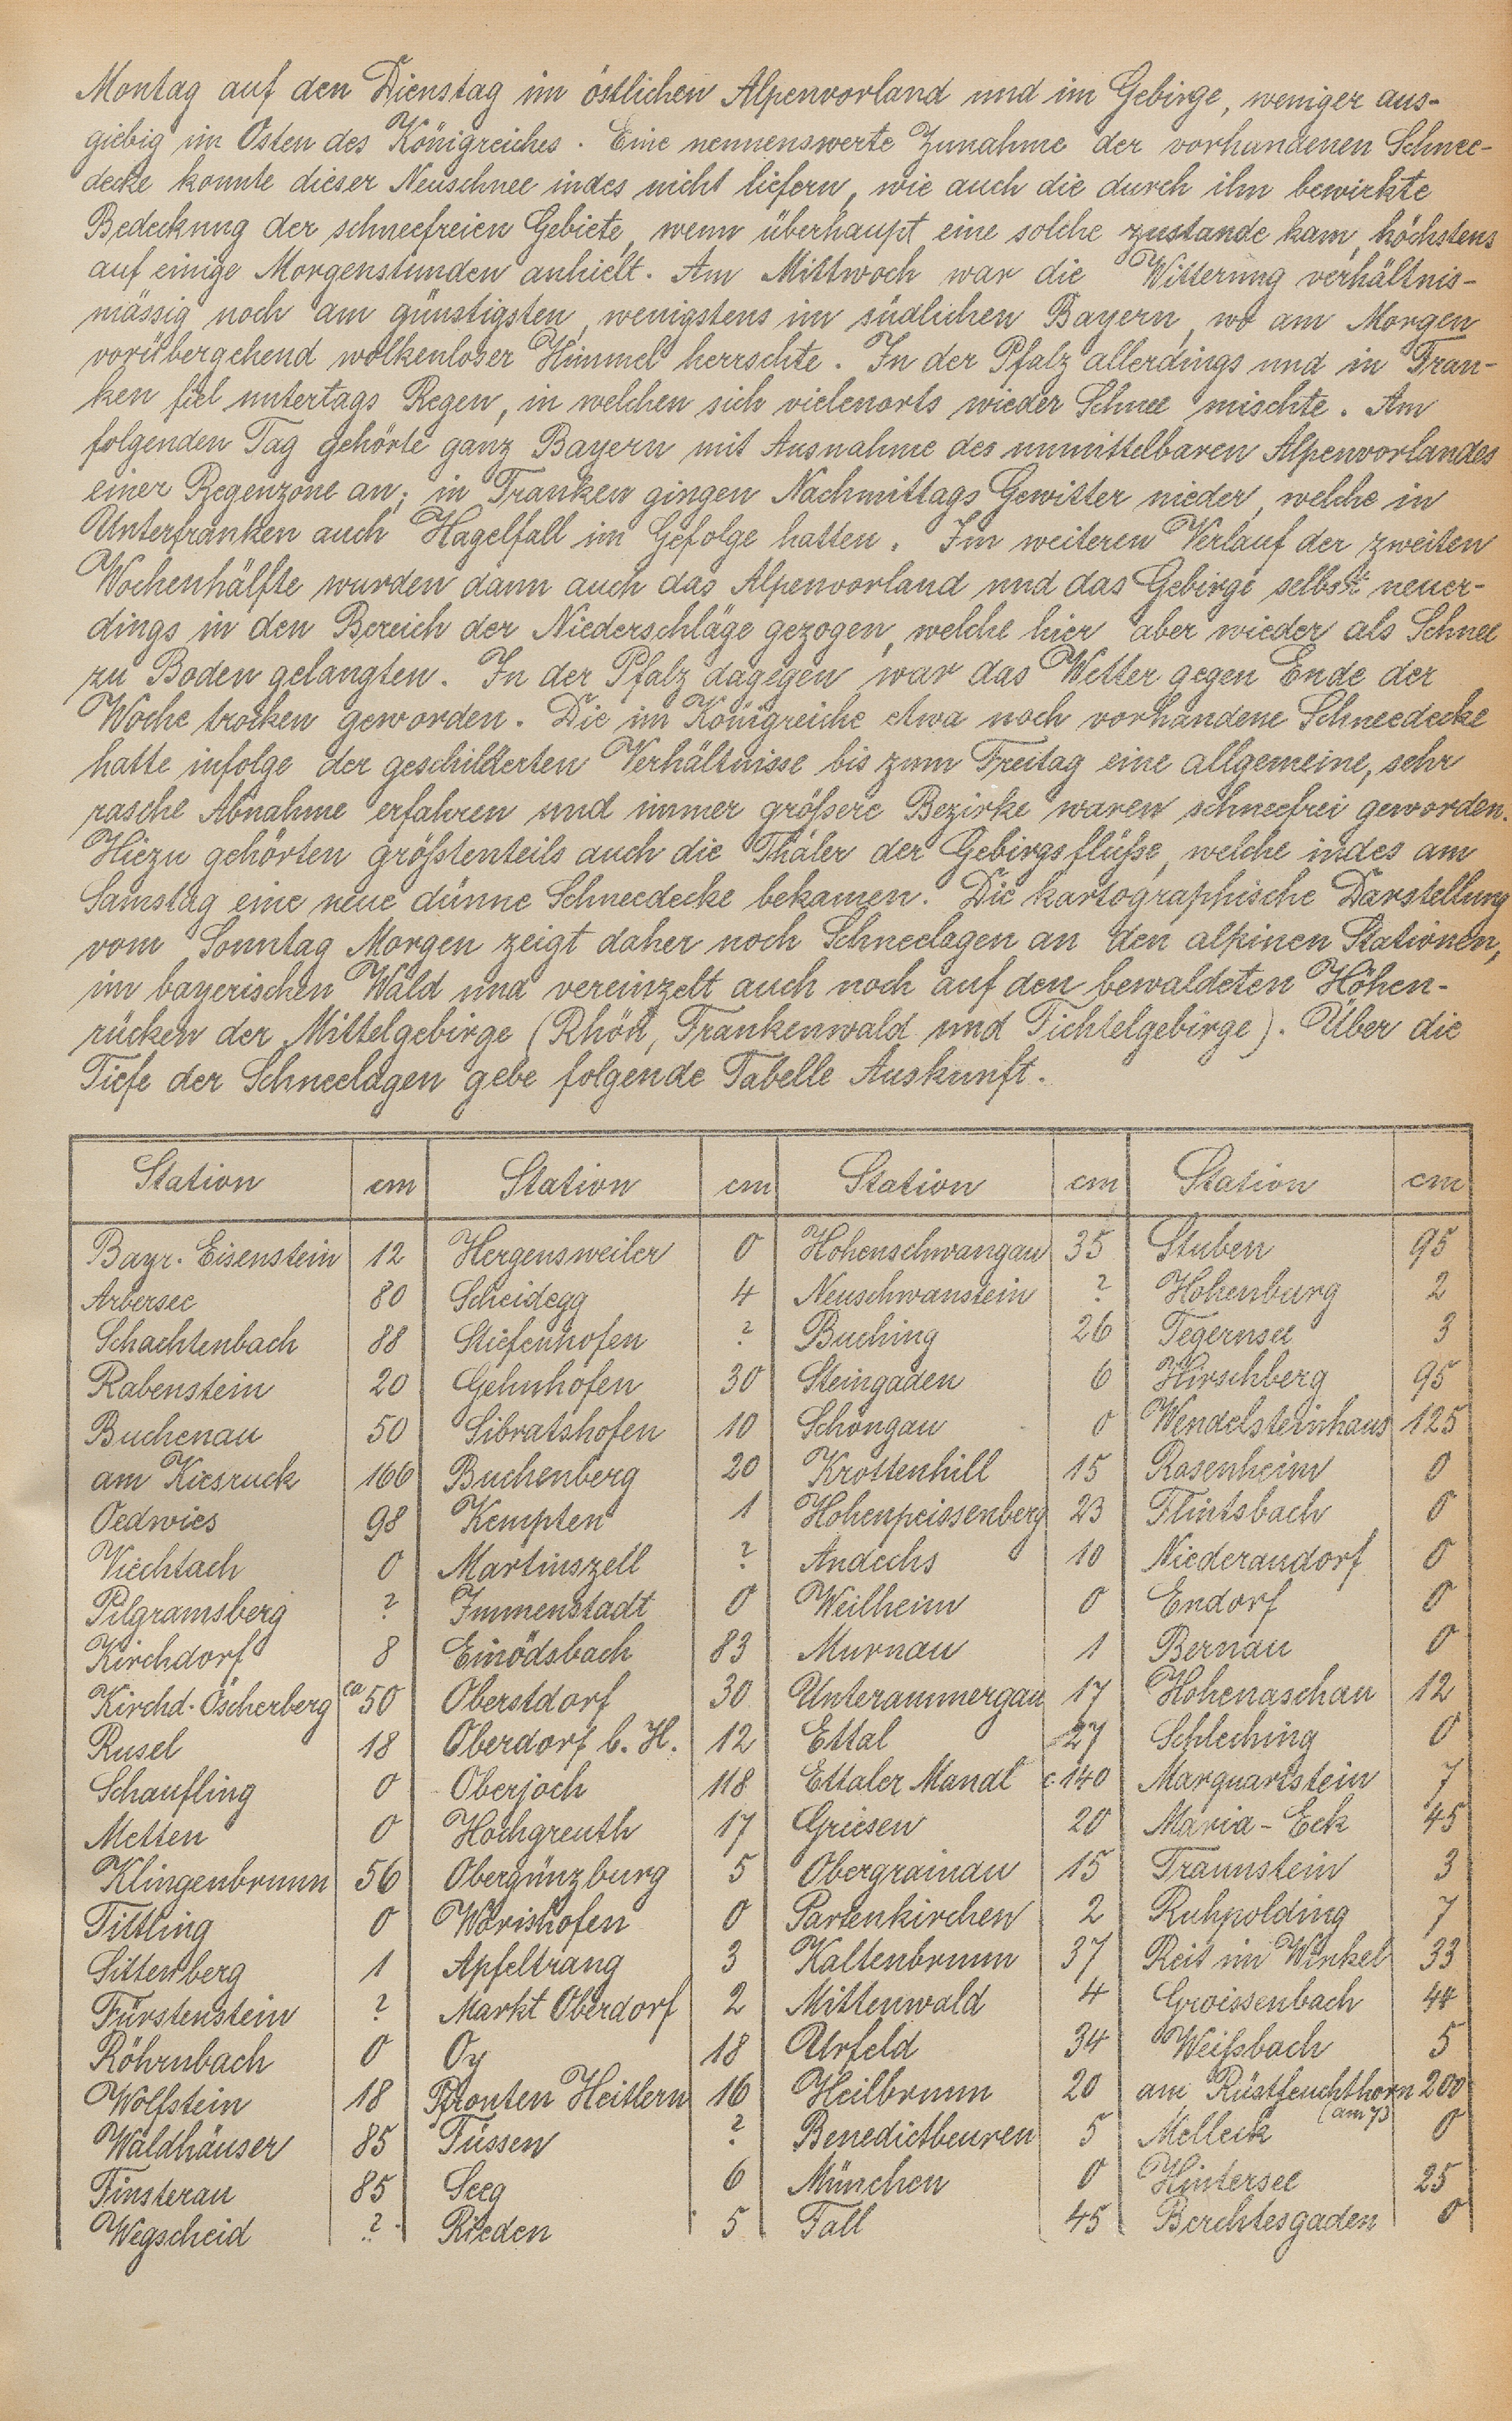 Montag auf den Dienstag im östlichen Alpenvorland und im Gebirge, weniger aus-
giebig im Osten des Königreiches. Eine nennenswerte Zunahme der vorhandenen Schnee-
decke konnte dieser Neuschnee indes nicht liefern, wie auch die durch ihn bewirkte
Bedeckung der schneefreien Gebiete, wenn überhaupt eine solche zustande kam, höchstens
auf einige Morgenstunden anhielt. Am Mittwoch war die Witterung verhältnis-
mässig noch am günstigsten, wenigstens im südlichen Bayern, wo am Morgen
vorübergehend wolkenloser Himmel herrschte. In der Pfalz allerdings und in Fran-
ken fiel untertags Regen, in welchen sich vielenorts wieder Schnee mischte. Am
folgenden Tag gehörte ganz Bayern mit Ausnahme des unmittelbaren Alpenvorlandes
einer Regenzone an; in Franken gingen Nachmittags Gewitter nieder, welche in
Unterfranken auch Hagelfall im Gefolge hatten. Im weiteren Verlauf der zweiten
Wochenhälfte wurden dann auch das Alpenvorland und das Gebirge selbst neuer-
dings in den Bereich der Niederschläge gezogen, welche hier aber wieder als Schnee
zu Boden gelangten. In der Pfalz dagegen war das Wetter gegen Ende der
Woche trocken geworden. Die im Königreiche etwa noch vorhandene Schneedecke
hatte infolge der geschilderten Verhältnisse bis zum Freitag eine allgemeine, sehr
rasche Abnahme erfahren und immer größere Bezirke waren schneefrei geworden.
Hiezu gehörten größtenteils auch die Thäler der Gebirgsflüße, welche indes am
Samstag eine neue dünne Schneedecke bekamen. Die kartographische Darstellung
vom Sonntag Morgen zeigt daher noch Schneelagen an den alpinen Stationen,
im bayerischen Wald und vereinzelt auch noch auf den bewaldeten Höhen-
rücken der Mittelgebirge (Rhön, Frankenwald und Fichtelgebirge). Über die
Tiefe der Schneelagen gebe folgende Tabelle Auskunft.
Station cm Station cm Station cm Station cm
Bayr. Eisenstein 12 Hergensweiler 0 Hohenschwangau 35 Stuben 95
Arbersee 80 Scheidegg 4 Neuschwanstein ? Hohenburg 2
Schachtenbach 88 Stiefenhofen ? Buching 26 Tegernsee 3
Rabenstein 20 Gehnhofen 30 Steingaden 6 Hirschberg 95
Buchenau 50 Sibratshofen 10 Schongau 0 Wendelsteinhaus 125
am Kiesruck 166 Buchenberg 20 Krottenhill 15 Rosenheim 0
Oedwies 98 Kempten 1 Hohenpeissenberg 23 Flintsbach 0
Viechtach 0 Martinszell ? Andechs 10 Niederaudorf 0
Pilgramsberg ? Immenstadt 0 Weilheim 0 Endorf 0
Kirchdorf 8 Einödsbach 83 Murnau 1 Bernau 0
Kirchd. Öscherberg ca 50 Oberstdorf 30 Unterammergau 17 Hohenaschau 12
Rusel 18 Oberdorf b. H. 12 Ettal 27 Schleching 0
Schaufling 0 Oberjoch 118 Ettaler Mandl c. 140 Marquartstein 7
Metten 0 Hochgreuth 17 Griesen 20 Maria-Eck 45
Klingenbrunn 56 Obergünzburg 5 Obergrainau 15 Traunstein 3
Tittling 0 Wörishofen 0 Partenkirchen 2 Ruhpolding 7
Sittenberg 1 Apfeltrang 3 Kaltenbrunn 37 Reit im Winkel 33
Fürstenstein ? Markt Oberdorf 2 Mittenwald 4 Groissenbach 44
Röhrnbach 0 Oy 18 Urfeld 34 Weißbach 5
Wolfstein 18 Pfronten Heitlern 16 Heilbrunn 20 am Rüstfeuchthorn 200
(am 7)
Waldhäuser 85 Füssen ? Benedictbeuren 5 Melleck 0
Finsterau 85 Seeg 6 München 0 Hintersee 25
Wegscheid ? Rieden 5 Fall 45 Berchtesgaden 0